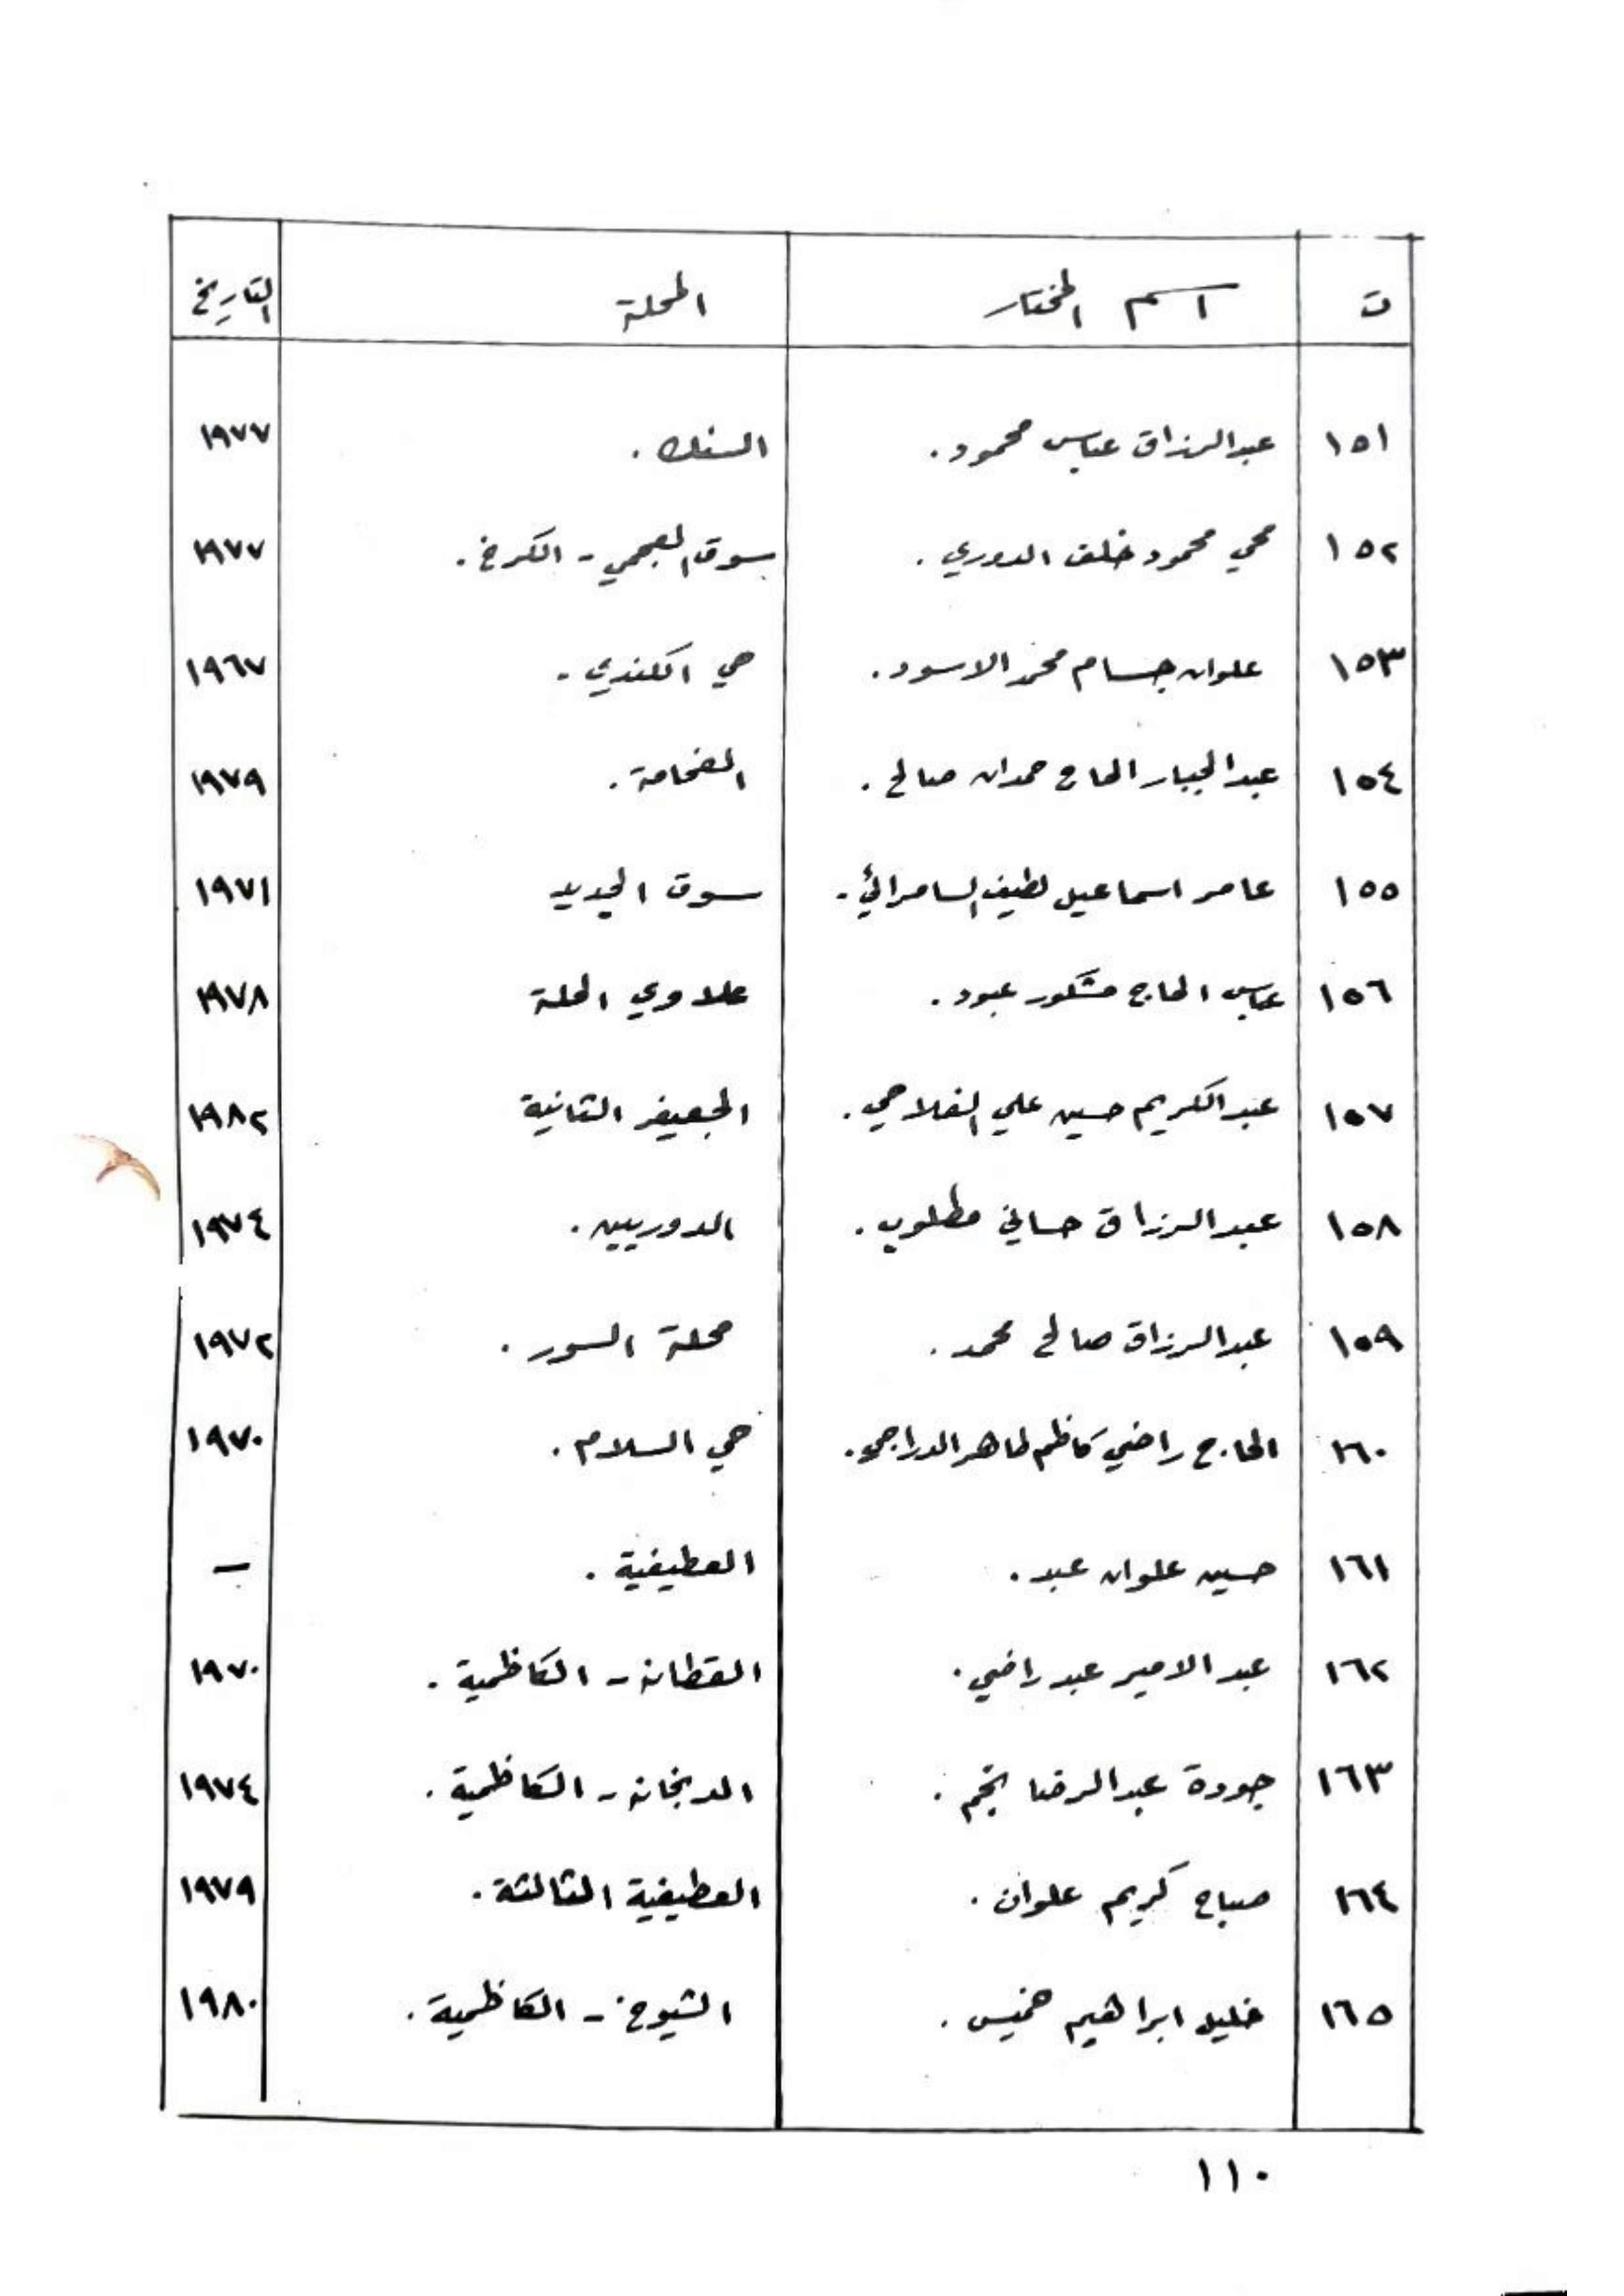 ت اسم المختار المحلة التاريخ
١٥١ عبدالرزاق عباس محمود. السنك. ١٩٧٧
١٥٢ محي محمود خلف الدوري. سوق العجمي - الكرخ. ١٩٧٧
١٥٣ علوان جسام محمد الاسود. حي الكندي - ١٩٦٧
١٥٤ عبدالجبار الحاج حمدان صالح. الفحامة. ١٩٧٩
١٥٥ عامر اسماعيل لطيف السامرائي. سوق الجديد ١٩٧١
١٥٦ عباس الحاج مشكور عبود. علاوي الحلة ١٩٧٨
١٥٧ عبدالكريم حسين علي الفلاحي. الجعيفر الثانية ١٩٨٢
١٥٨ عبدالرزاق حساني مطلوب. الدوريين. ١٩٧٤
١٥٩ عبدالرزاق صالح محمد. محلة السور. ١٩٧٢
١٦٠ الحاج راضي كاظم طاهر الدراجي. حي السلام. ١٩٧٠
١٦١ حسين علوان عبد. العطيفية. -
١٦٢ عبد الامير عبد راضي. القطانة - الكاظمية. ١٩٧٠
١٦٣ جودة عبدالرضا نجم. الدبخانة - الكاظمية. ١٩٧٤
١٦٤ صباح كريم علوان. العطيفية الثالثة. ١٩٧٩
١٦٥ خليل ابراهيم خميس. الشيوخ - الكاظمية. ١٩٨٠
١١٠